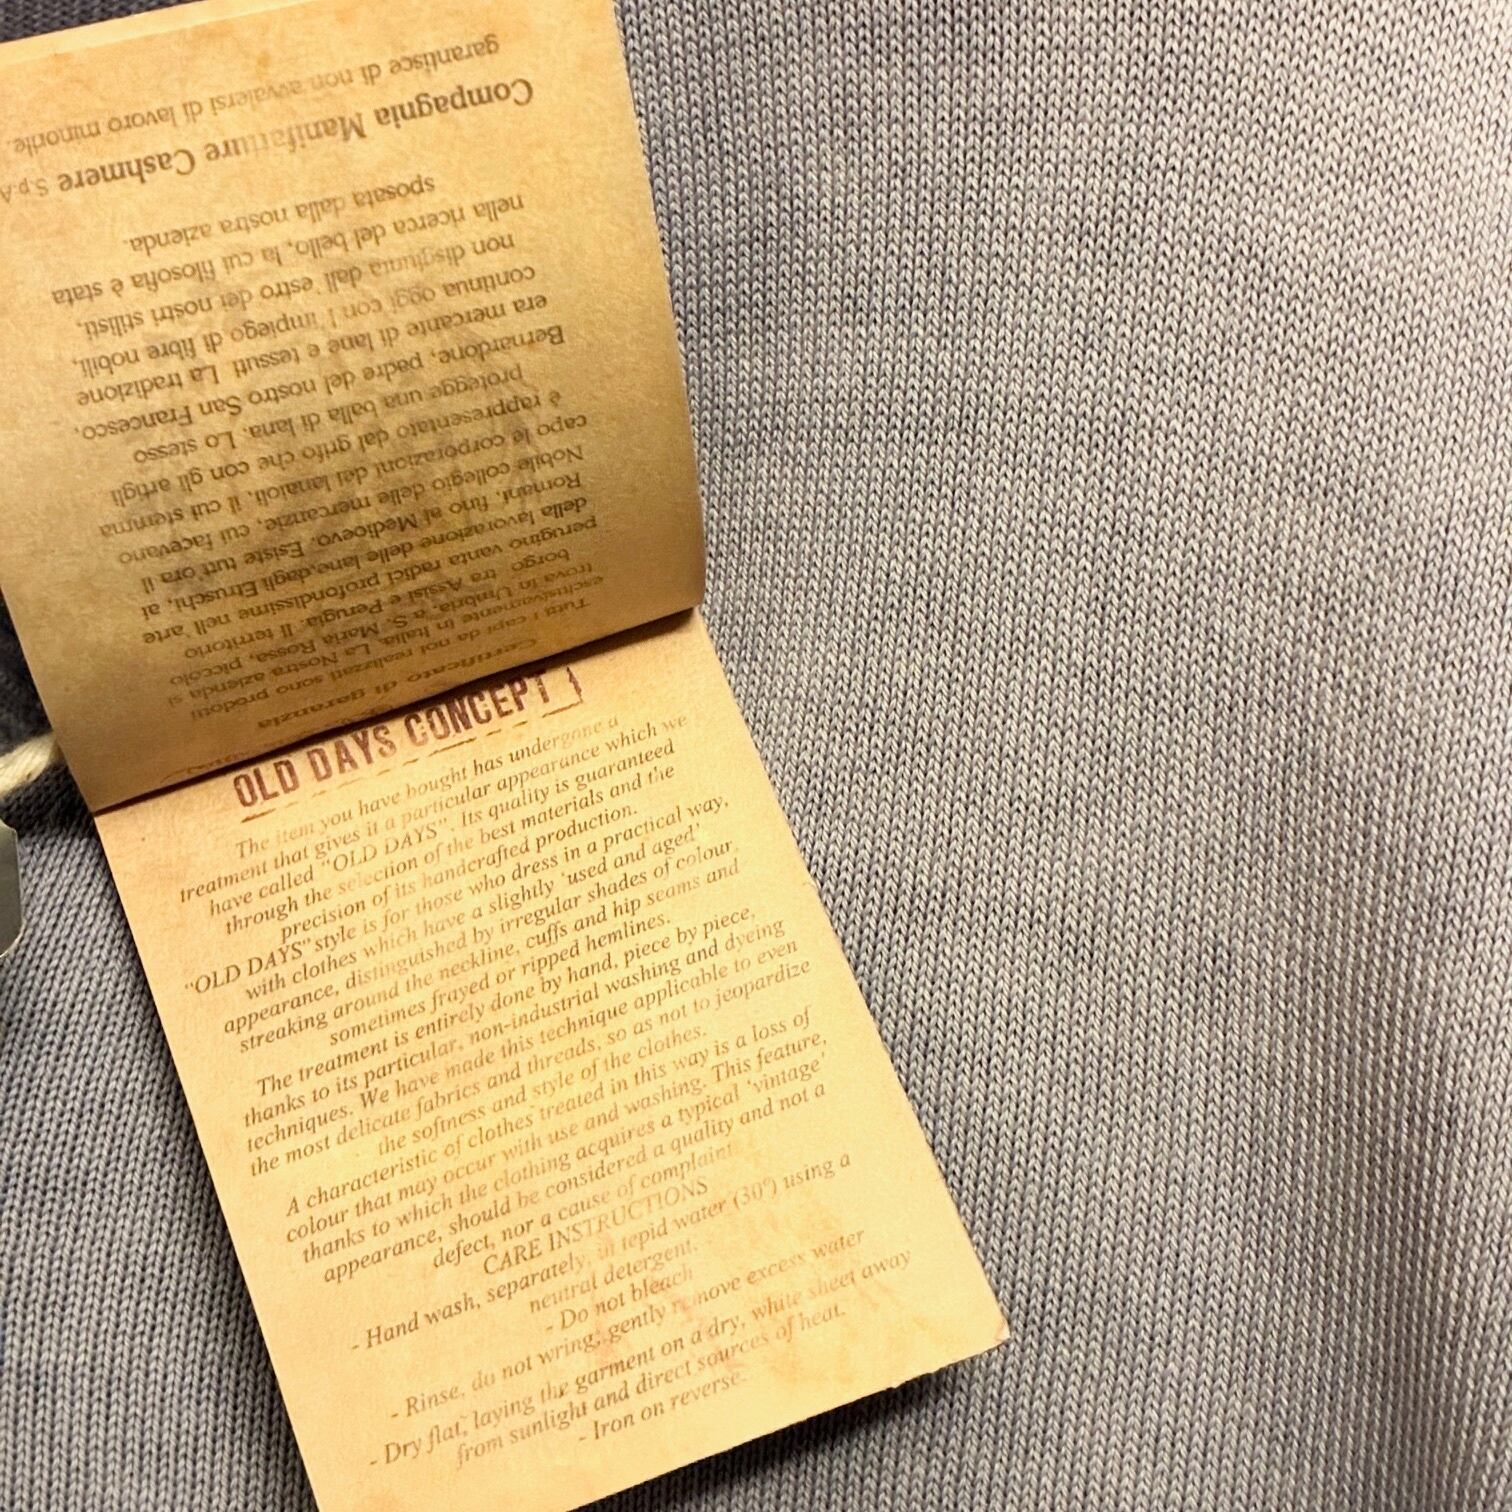 Certificato di garanzia
Tutti i capi da noi realizzati sono prodotti
esclusivamente in Italia. La Nostra azienda si
trova in Umbria, a S. Maria Rossa, piccolo
borgo tra Assisi e Perugia. Il territorio
perugino vanta radici profondissime nell'arte
della lavorazione delle lane,dagli Etruschi, ai
Romani, fino al Medioevo. Esiste tutt'ora il
Nobile collegio delle mercanzie, cui facevano
capo le corporazioni dei lanaioli, il cui stemma
è rappresentato dal grifo che con gli artigli
protegge una balla di lana. Lo stesso
Bernardone, padre del nostro San Francesco,
era mercante di lane e tessuti. La tradizione
continua oggi con l'impiego di fibre nobili,
non disgiunta dall'estro dei nostri stilisti,
nella ricerca del bello, la cui filosofia è stata
sposata dalla nostra azienda.
Compagnia Manifatture Cashmere S.p.A
garantisce di non avvalersi di lavoro minorile.
OLD DAYS CONCEPT
The item you have bought has undergone a
treatment that gives it a particular appearance which we
have called "OLD DAYS". Its quality is guaranteed
through the selection of the best materials and the
precision of its handcrafted production.
"OLD DAYS" style is for those who dress in a practical way,
with clothes which have a slightly 'used and aged'
appearance, distinguished by irregular shades of colour,
streaking around the neckline, cuffs and hip seams and
sometimes frayed or ripped hemlines.
The treatment is entirely done by hand, piece by piece,
thanks to its particular, non-industrial washing and dyeing
techniques. We have made this technique applicable to even
the most delicate fabrics and threads, so as not to jeopardize
the softness and style of the clothes.
A characteristic of clothes treated in this way is a loss of
colour that may occur with use and washing. This feature,
thanks to which the clothing acquires a typical 'vintage'
appearance, should be considered a quality and not a
defect, nor a cause of complaint.
CARE INSTRUCTIONS
- Hand wash, separately, in tepid water (30°) using a
neutral detergent.
- Do not bleach
- Rinse, do not wring; gently remove excess water
- Dry flat, laying the garment on a dry, white sheet away
from sunlight and direct sources of heat.
- Iron on reverse.